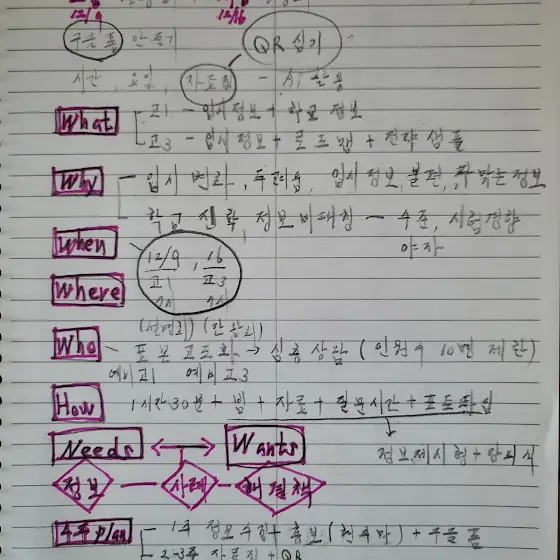 12/9 12/16
구글 폼 만들기 QR 심기
시간, 요일, 자료집 - AI 활용
What 고1 - 입시정보 + 학교 정보
고3 - 입시정보 + 로드맵 + 전략 샘플
Why 입시 변화, 두려움, 입시정보, 불편,
학교 선택, 정보비대칭 - 수준, 시험경향
When 야자
12/9, 16
고1 고3
Where
(설명회) (간담회)
Who → 심층상담 (인원수 10명 제한)
예비고1 예비고3
How 1시간30분 + 밥 + 자료 + 질문시간 +
Needs ↔ Wants 정보제시형 +
정보 - 사례 - 해결책
4주 plan 1주 정보수집 + 홍보 ( ) + 구글폼
2-3주 자료집 + QR